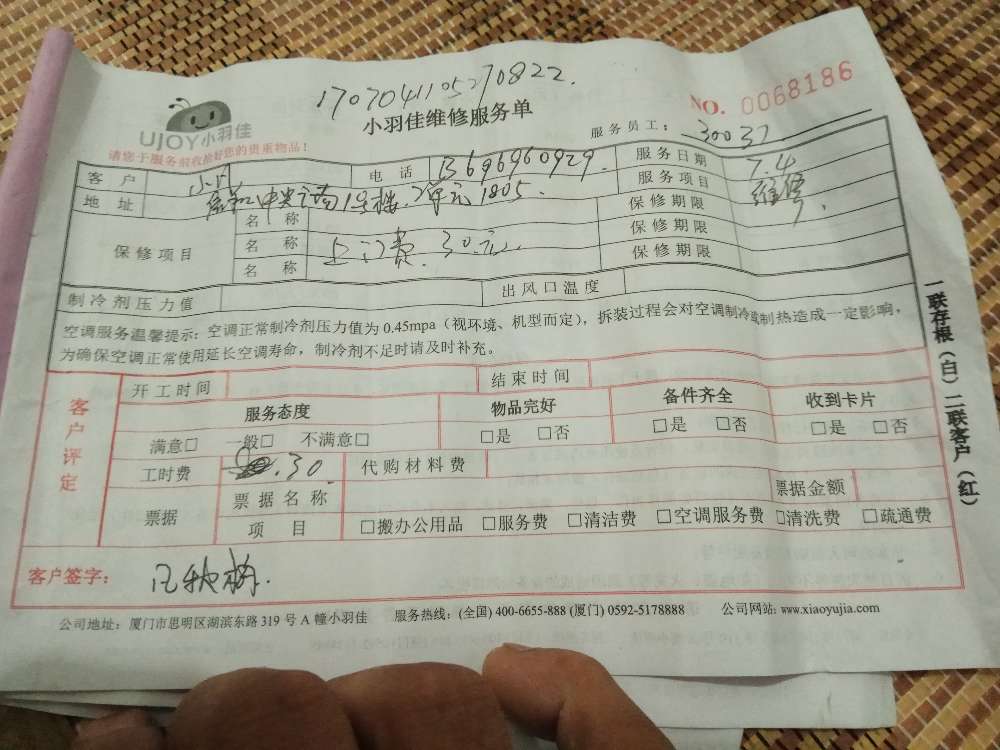 1707041105270822.
UJOY小羽佳
小羽佳维修服务单
NO. 0068186
请您于服务前收拾好您的贵重物品！
服务员工： 30037
客 户
电 话 13696960929.
服务日期 7.4
地 址 中央 1号楼 2单元1805.
服务项目 维修
保修项目
名 称
保修期限
名 称 上门费.30元
保修期限
名 称
保修期限
制冷剂压力值
出风口温度
空调服务温馨提示：空调正常制冷剂压力值为 0.45mpa（视环境、机型而定），拆装过程会对空调制冷或制热造成一定影响，
为确保空调正常使用延长空调寿命，制冷剂不足时请及时补充。
客户评定
开工时间
结束时间
服务态度
物品完好
备件齐全
收到卡片
满意□ 一般□ 不满意□
□是 □否
□是 □否
□是 □否
工时费 .30
代购材料费
票据
票据名称
票据金额
项 目 □搬办公用品 □服务费 □清洁费 □空调服务费 □清洗费 □疏通费
客户签字：
公司地址：厦门市思明区湖滨东路 319 号 A 幢小羽佳 服务热线：(全国) 400-6655-888 (厦门) 0592-5178888 公司网站：www.xiaoyujia.com
一联存根（白）二联客户（红）